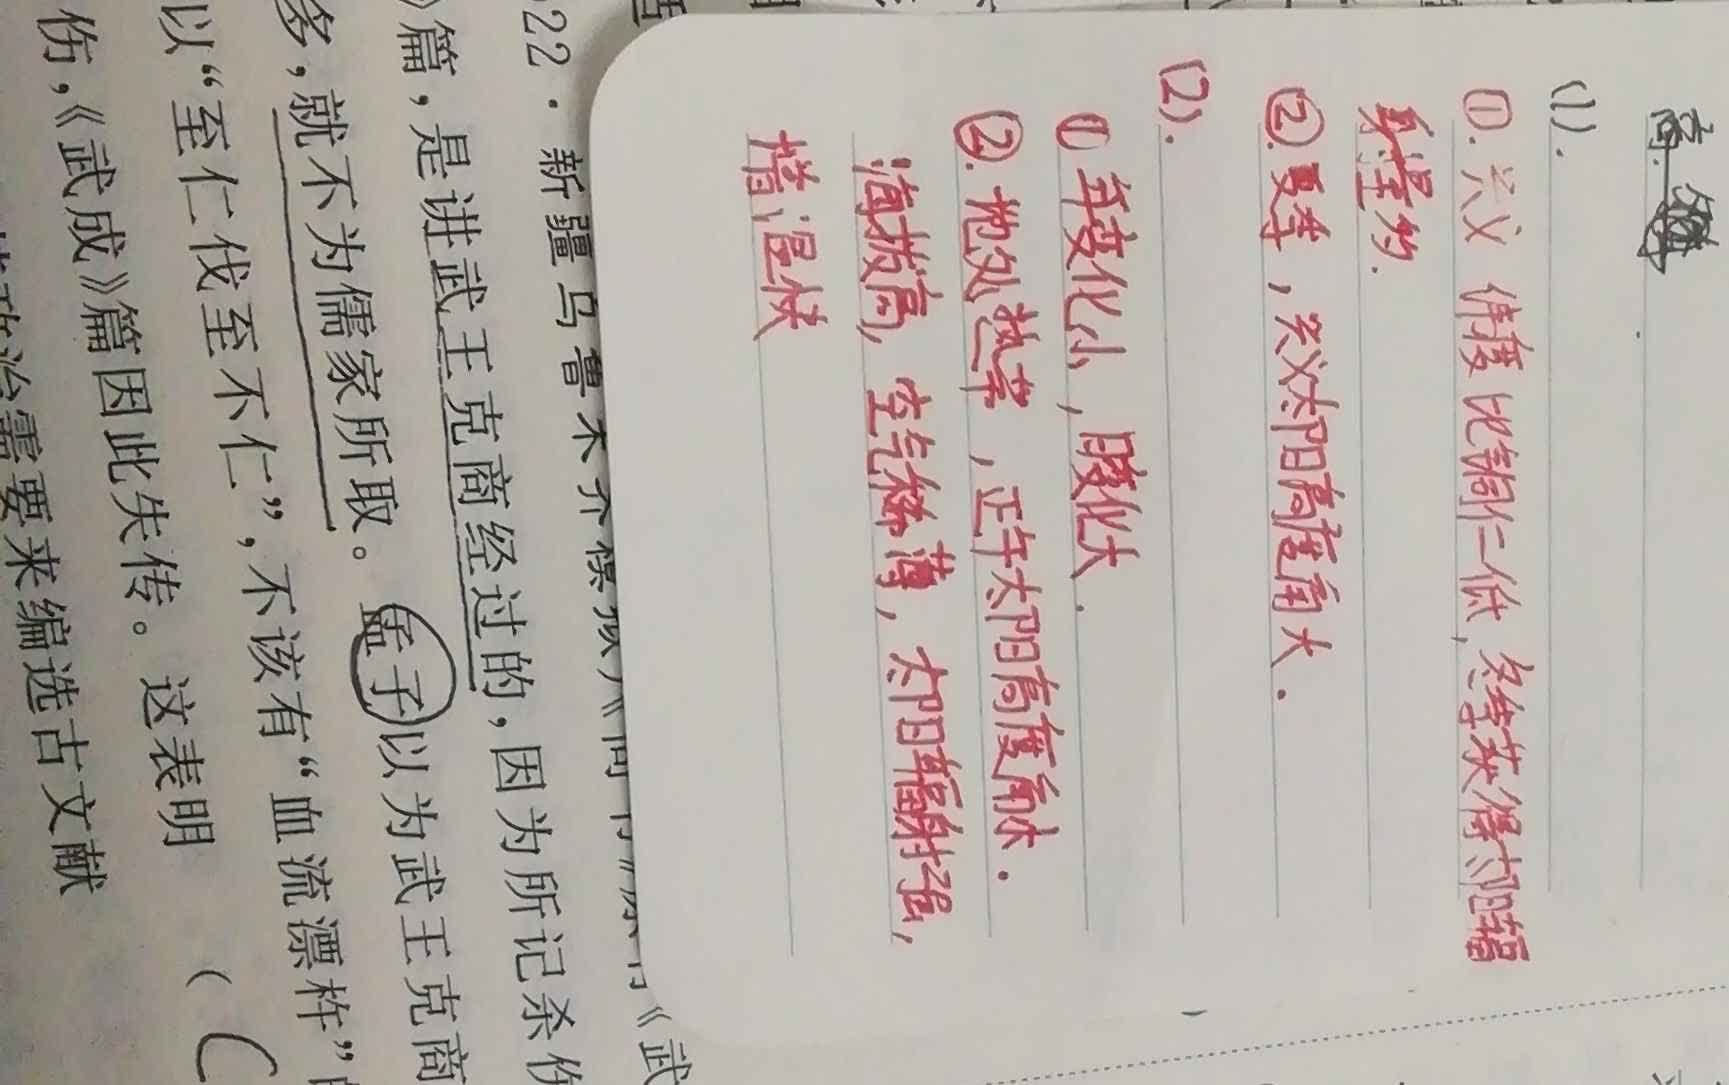 (1).
①. 兴义 纬度比铜仁低, 冬季获得太阳辐
射量多.
②. 夏季, 兴义太阳高度角大.
(2).
① 年变化小, 日变化大.
②. 地处热带, 正午太阳高度角大.
海拔高, 空气稀薄, 太阳辐射强,
增温快
022·新疆乌鲁木齐模拟)《尚书》
《武
》篇,是讲武王克商经过的,因为所记杀伤
多,就不为儒家所取。孟子以为武王克商
以“至仁伐至不仁”,不该有“血流漂杵”
伤,《武成》篇因此失传。这表明 ( C
治需要来编选古文献